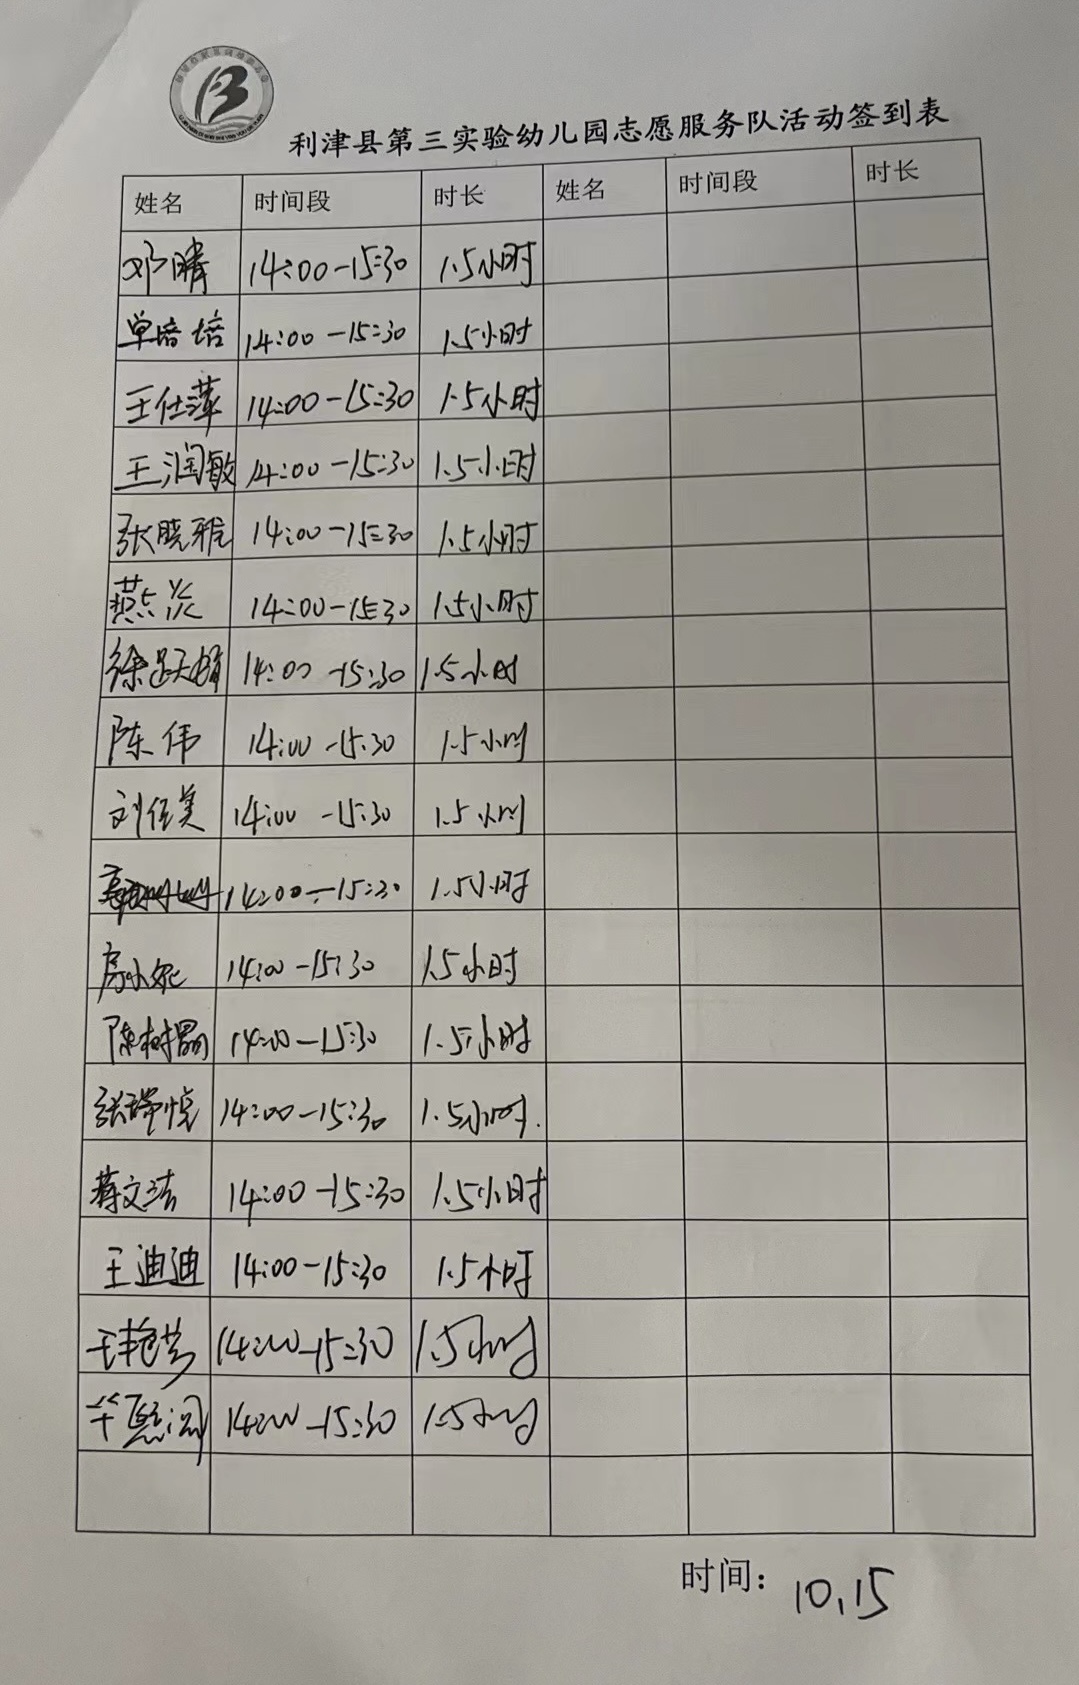 利津县第三实验幼儿园志愿服务队活动签到表
姓名 时间段 时长 姓名 时间段 时长
邓晴 14:00-15:30 1.5小时
单培培 14:00-15:30 1.5小时
王仕萍 14:00-15:30 1.5小时
王润敏 14:00-15:30 1.5小时
张晓雅 14:00-15:30 1.5小时
燕燚 14:00-15:30 1.5小时
徐跃娟 14:00-15:30 1.5小时
陈伟 14:00-15:30 1.5小时
刘佳美 14:00-15:30 1.5小时
14:00-15:30 1.5小时
房小妮 14:00-15:30 1.5小时
陈树 14:00-15:30 1.5小时
张瑞悦 14:00-15:30 1.5小时.
蒋文洁 14:00-15:30 1.5小时
王迪迪 14:00-15:30 1.5小时
王艳芳 14:00-15:30 1.5小时
14:00-15:30 1.5小时
时间: 10.15